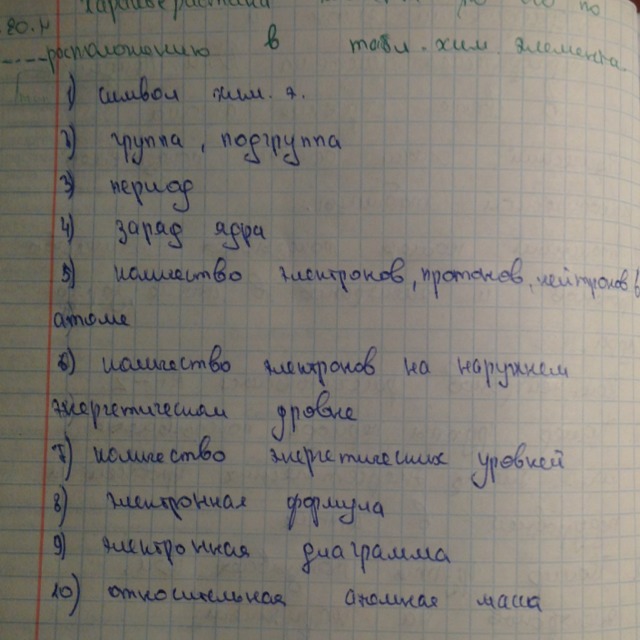 по
расположению в табл. хим элемента.
1) символ хим. э.
2) группа, подгруппа
3) период
4) заряд ядра
5) количество электронов, протонов, нейтронов в
атоме
6) количество электронов на наружнем
энергетическом уровне
7) количество энергетических уровней
8) электронная формула
9) электронная диаграмма
10) относительная атомная масса